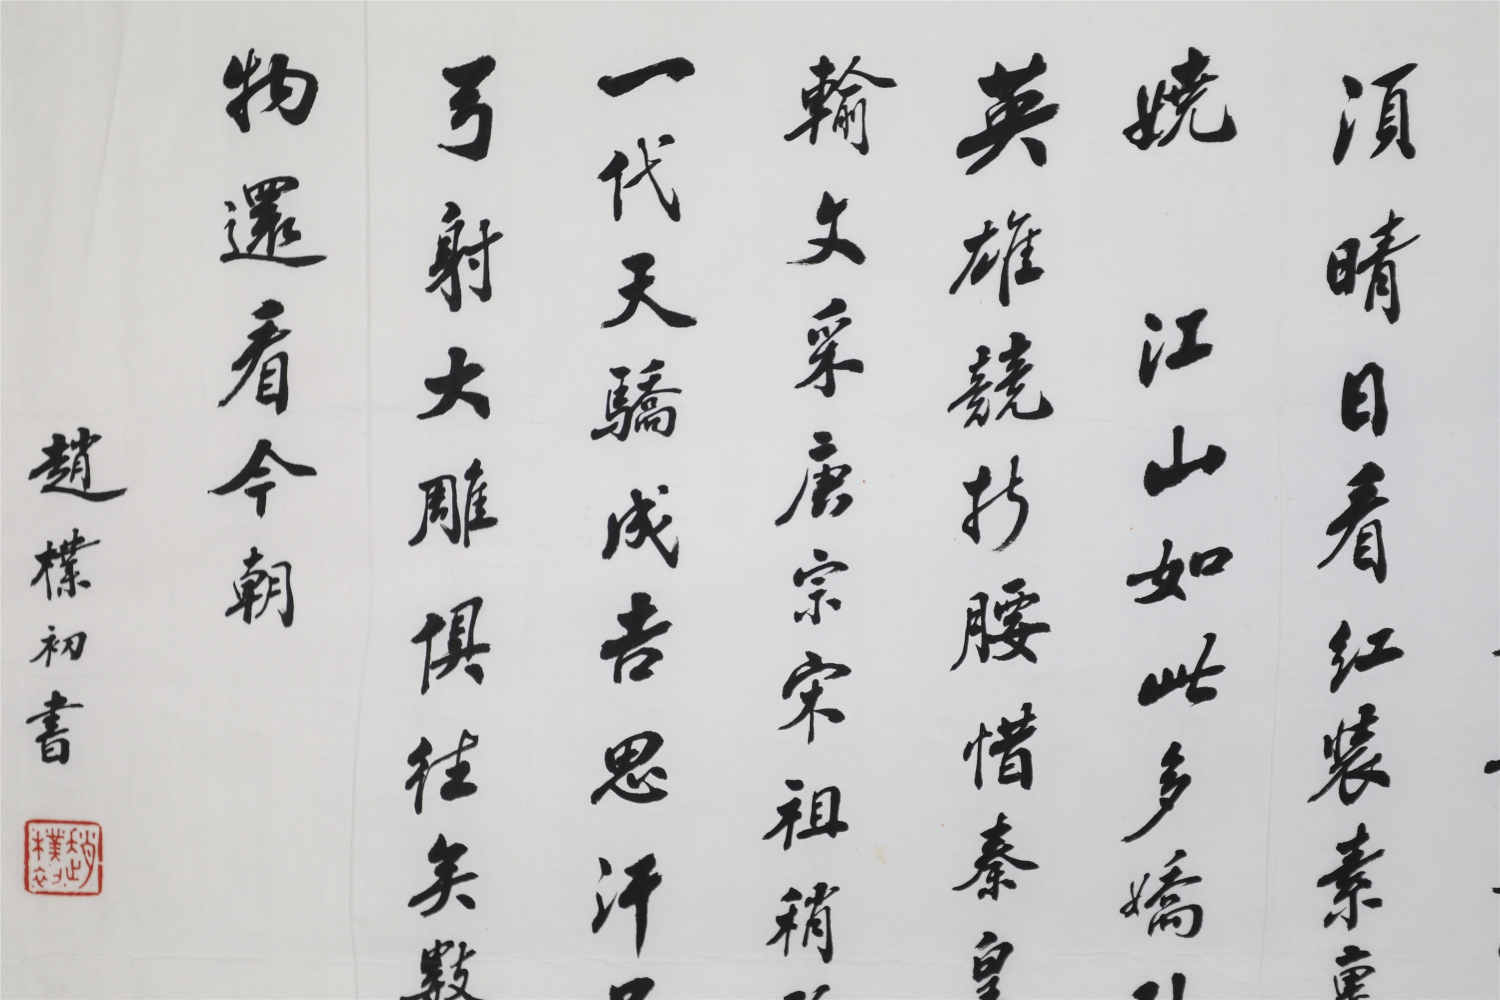 須晴日看紅裝素裹
嬈 江山如此多嬌引
英雄競折腰惜秦皇
輸文采唐宗宋祖稍
一代天驕成吉思汗
弓射大雕俱往矣數
物還看今朝
趙樸初書
趙樸初